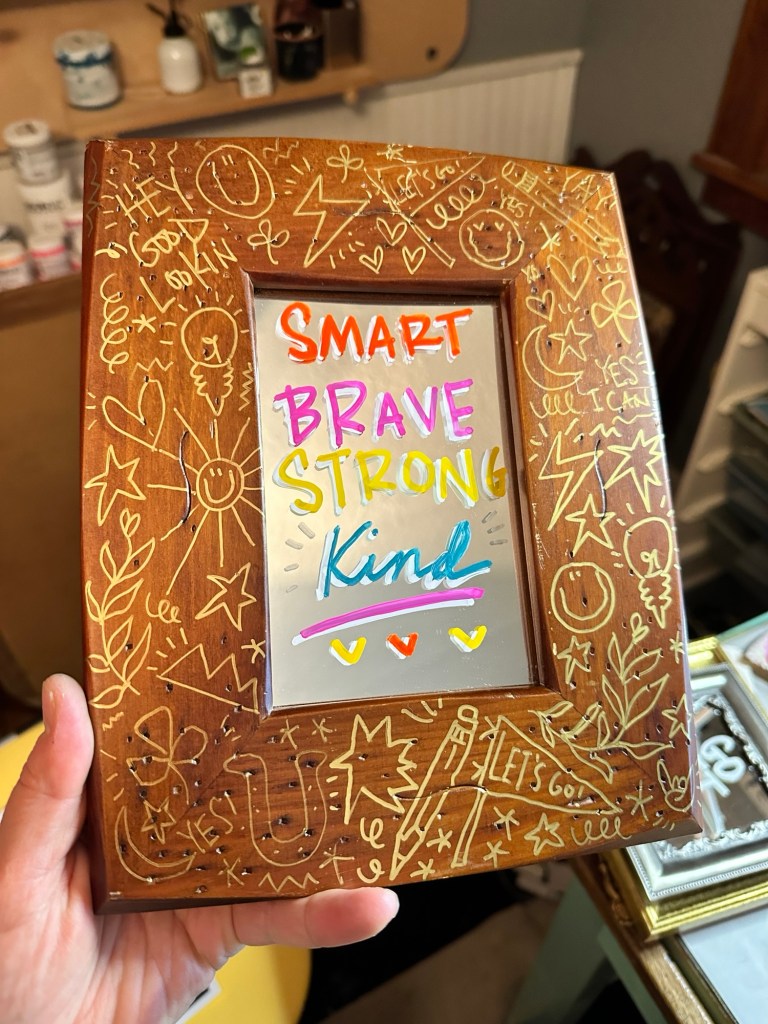 HEY
GOOD
LOOKIN
LET'S GO
YES!
YES
I CAN
SMART
BRAVE
STRONG
Kind
YES!
LET'S GO!
GO